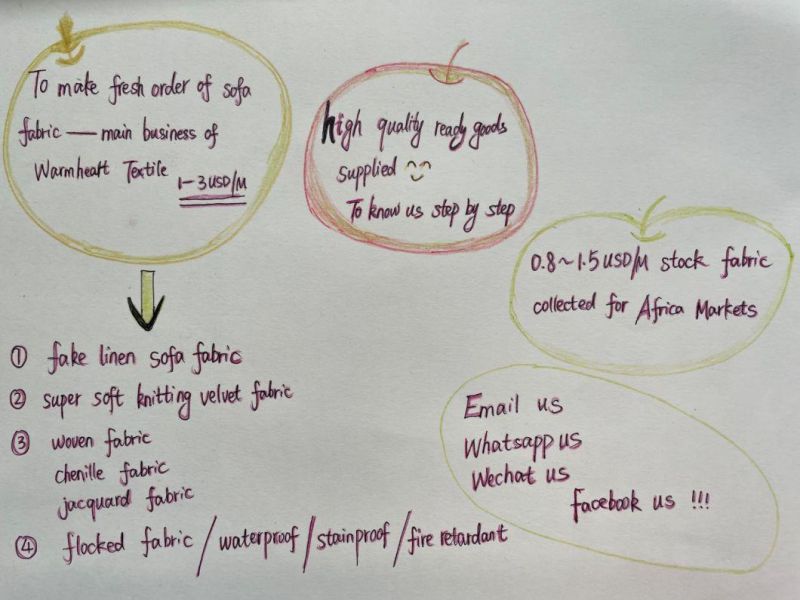 To make fresh order of sofa
fabric — main business of
Warmheart Textile 1-3 USD/M
high quality ready goods
supplied
To know us step by step
0.8~1.5 USD/M stock fabric
collected for Africa Markets
① fake linen sofa fabric
② super soft knitting velvet fabric
③ woven fabric
chenille fabric
jacquard fabric
④ flocked fabric / waterproof / stainproof / fire retardant
Email us
Whatsapp us
Wechat us
facebook us !!!